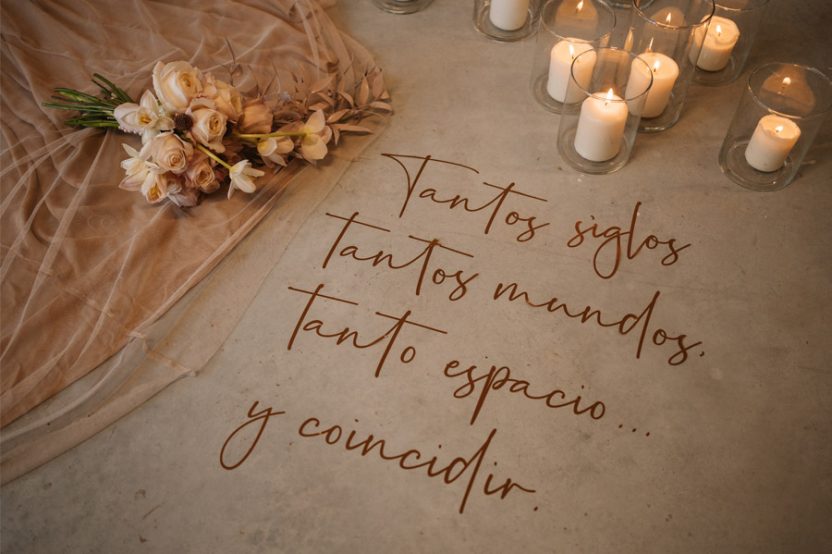 Tantos siglos
tantos mundos,
tanto espacio...
y coincidir.